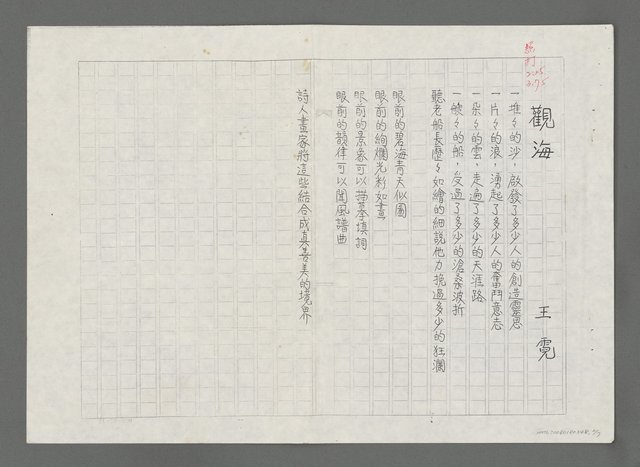 觀海
王霓
一堆々的沙，啟發了多少人的創造靈思
一片々的浪，湧起了多少人的奮鬥意志
一朵々的雲，走遍了多少的天涯路
一艘々的船，反過了多少的滄桑波折
聽老船長歷々如繪的細說他力挽過多少的狂瀾
眼前的碧海青天似圖
眼前的絢爛光彩如畫
眼前的景象可以描摹填詞
眼前的韻律可以聞風譜曲
詩人畫家將這些結合成真善美的境界